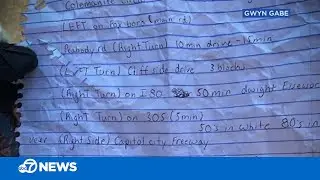 GWYN GABE
LEFT on fox born (main rd)
Peabody rd (Right Turn) 10 min drive - 15 min
(Left Turn) Cliff side drive 3 blocks
(Right Turn) on I 80 50 min Dwight
(Right Turn) on 305 (5 min)
50's in white 80's in
near (Right side) Capital city Freeway
abc 7 NEWS